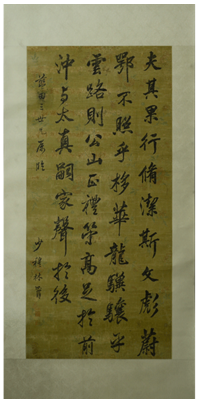 夫其果行脩潔斯文彪蔚
鄂不照乎棣華龍驥驤乎
雲路則公山正禮榮高足於前
沖與太真嗣家聲於後
世兄屬
少穆林